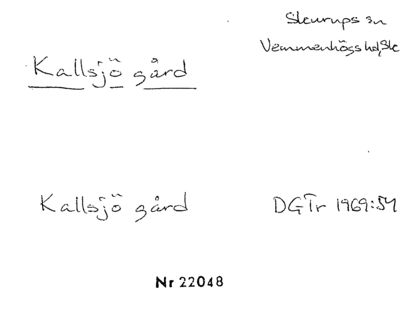 Skurups sn
Vemmenhögs hd, Sk
Kallsjö gård
Kallsjö gård
DGTr 1969:54
Nr 22048